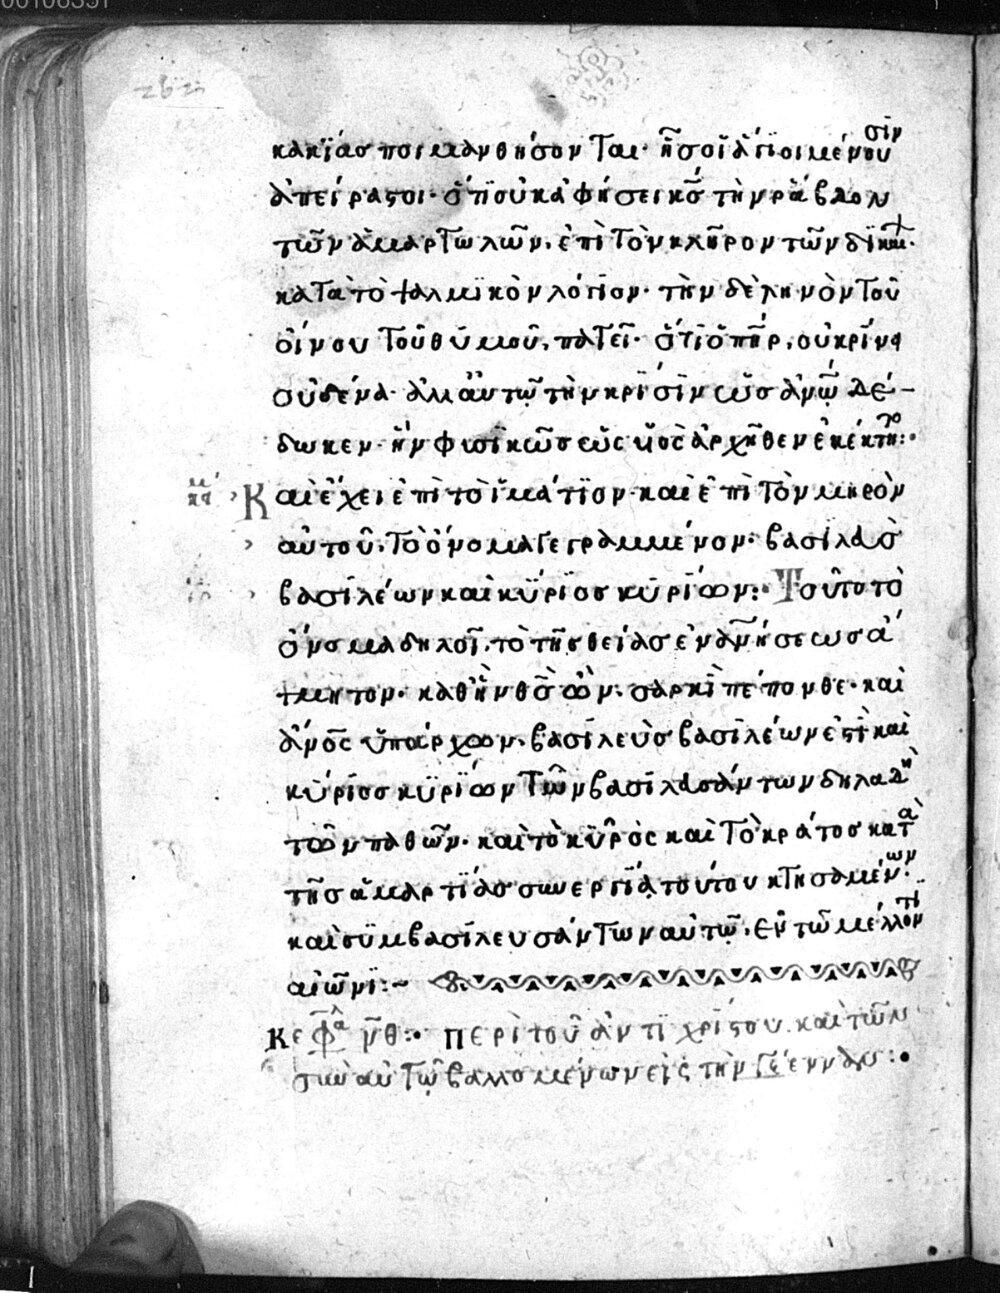 262
κακίας ποιμανθήσονται· ἢ οἱ ἅγιοι μένουσιν
ἀπείραστοι· ὅτι οὐκ ἀφήσει κς τὴν ράβδον
τῶν ἁμαρτωλῶν, ἐπὶ τὸν κλῆρον τῶν δικαι·
κατὰ τὸ ψαλμικὸν λόγιον· τὴν δὲ ληνὸν τοῦ
οἴνου τοῦ θυμοῦ, πατεῖ· ὅτι ὁ πηρ, οὐ κρίνει
οὐδένα· ἀλλ' αὐτῷ τὴν κρίσιν ὡς ἀνῳ δέ-
δωκεν· ἣν φυσικῶς ὡς υἱὸς ἀρχῆθεν ἐκέκτητο:·
Καὶ ἔχει ἐπὶ τὸ ἱμάτιον· καὶ ἐπὶ τὸν μηρὸν
αὐτοῦ, τὸ ὄνομα γεγραμμένον· βασιλεὺς
βασιλέων καὶ κύριος κυρίων:· Τοῦτο τὸ
ὄνομα δηλοῖ, τὸ τῆς θείας ἐνανήσεως ἄ
τμητον· καθ' ἣν θς ὢν, σαρκὶ πέπονθε· καὶ
ἄνος ὑπάρχων, βασιλεὺς βασιλέων ἐστὶ καὶ
κύριος κυρίων τῶν βασιλευσάντων δηλαδὴ
τῶν παθῶν· καὶ τὸ κύρος καὶ τὸ κράτος κατὰ
τῆς ἁμαρτίας συνεργίᾳ τούτου κτησαμένων·
καὶ συμβασιλευσάντων αὐτῷ, ἐν τῷ μέλλοντι
αἰῶνι:~
Κεφα νθ:· Περὶ τοῦ ἀντιχρίστου, καὶ τῶν
σὺν αὐτῷ βαλλομένων εἰς τὴν γέενναν:·